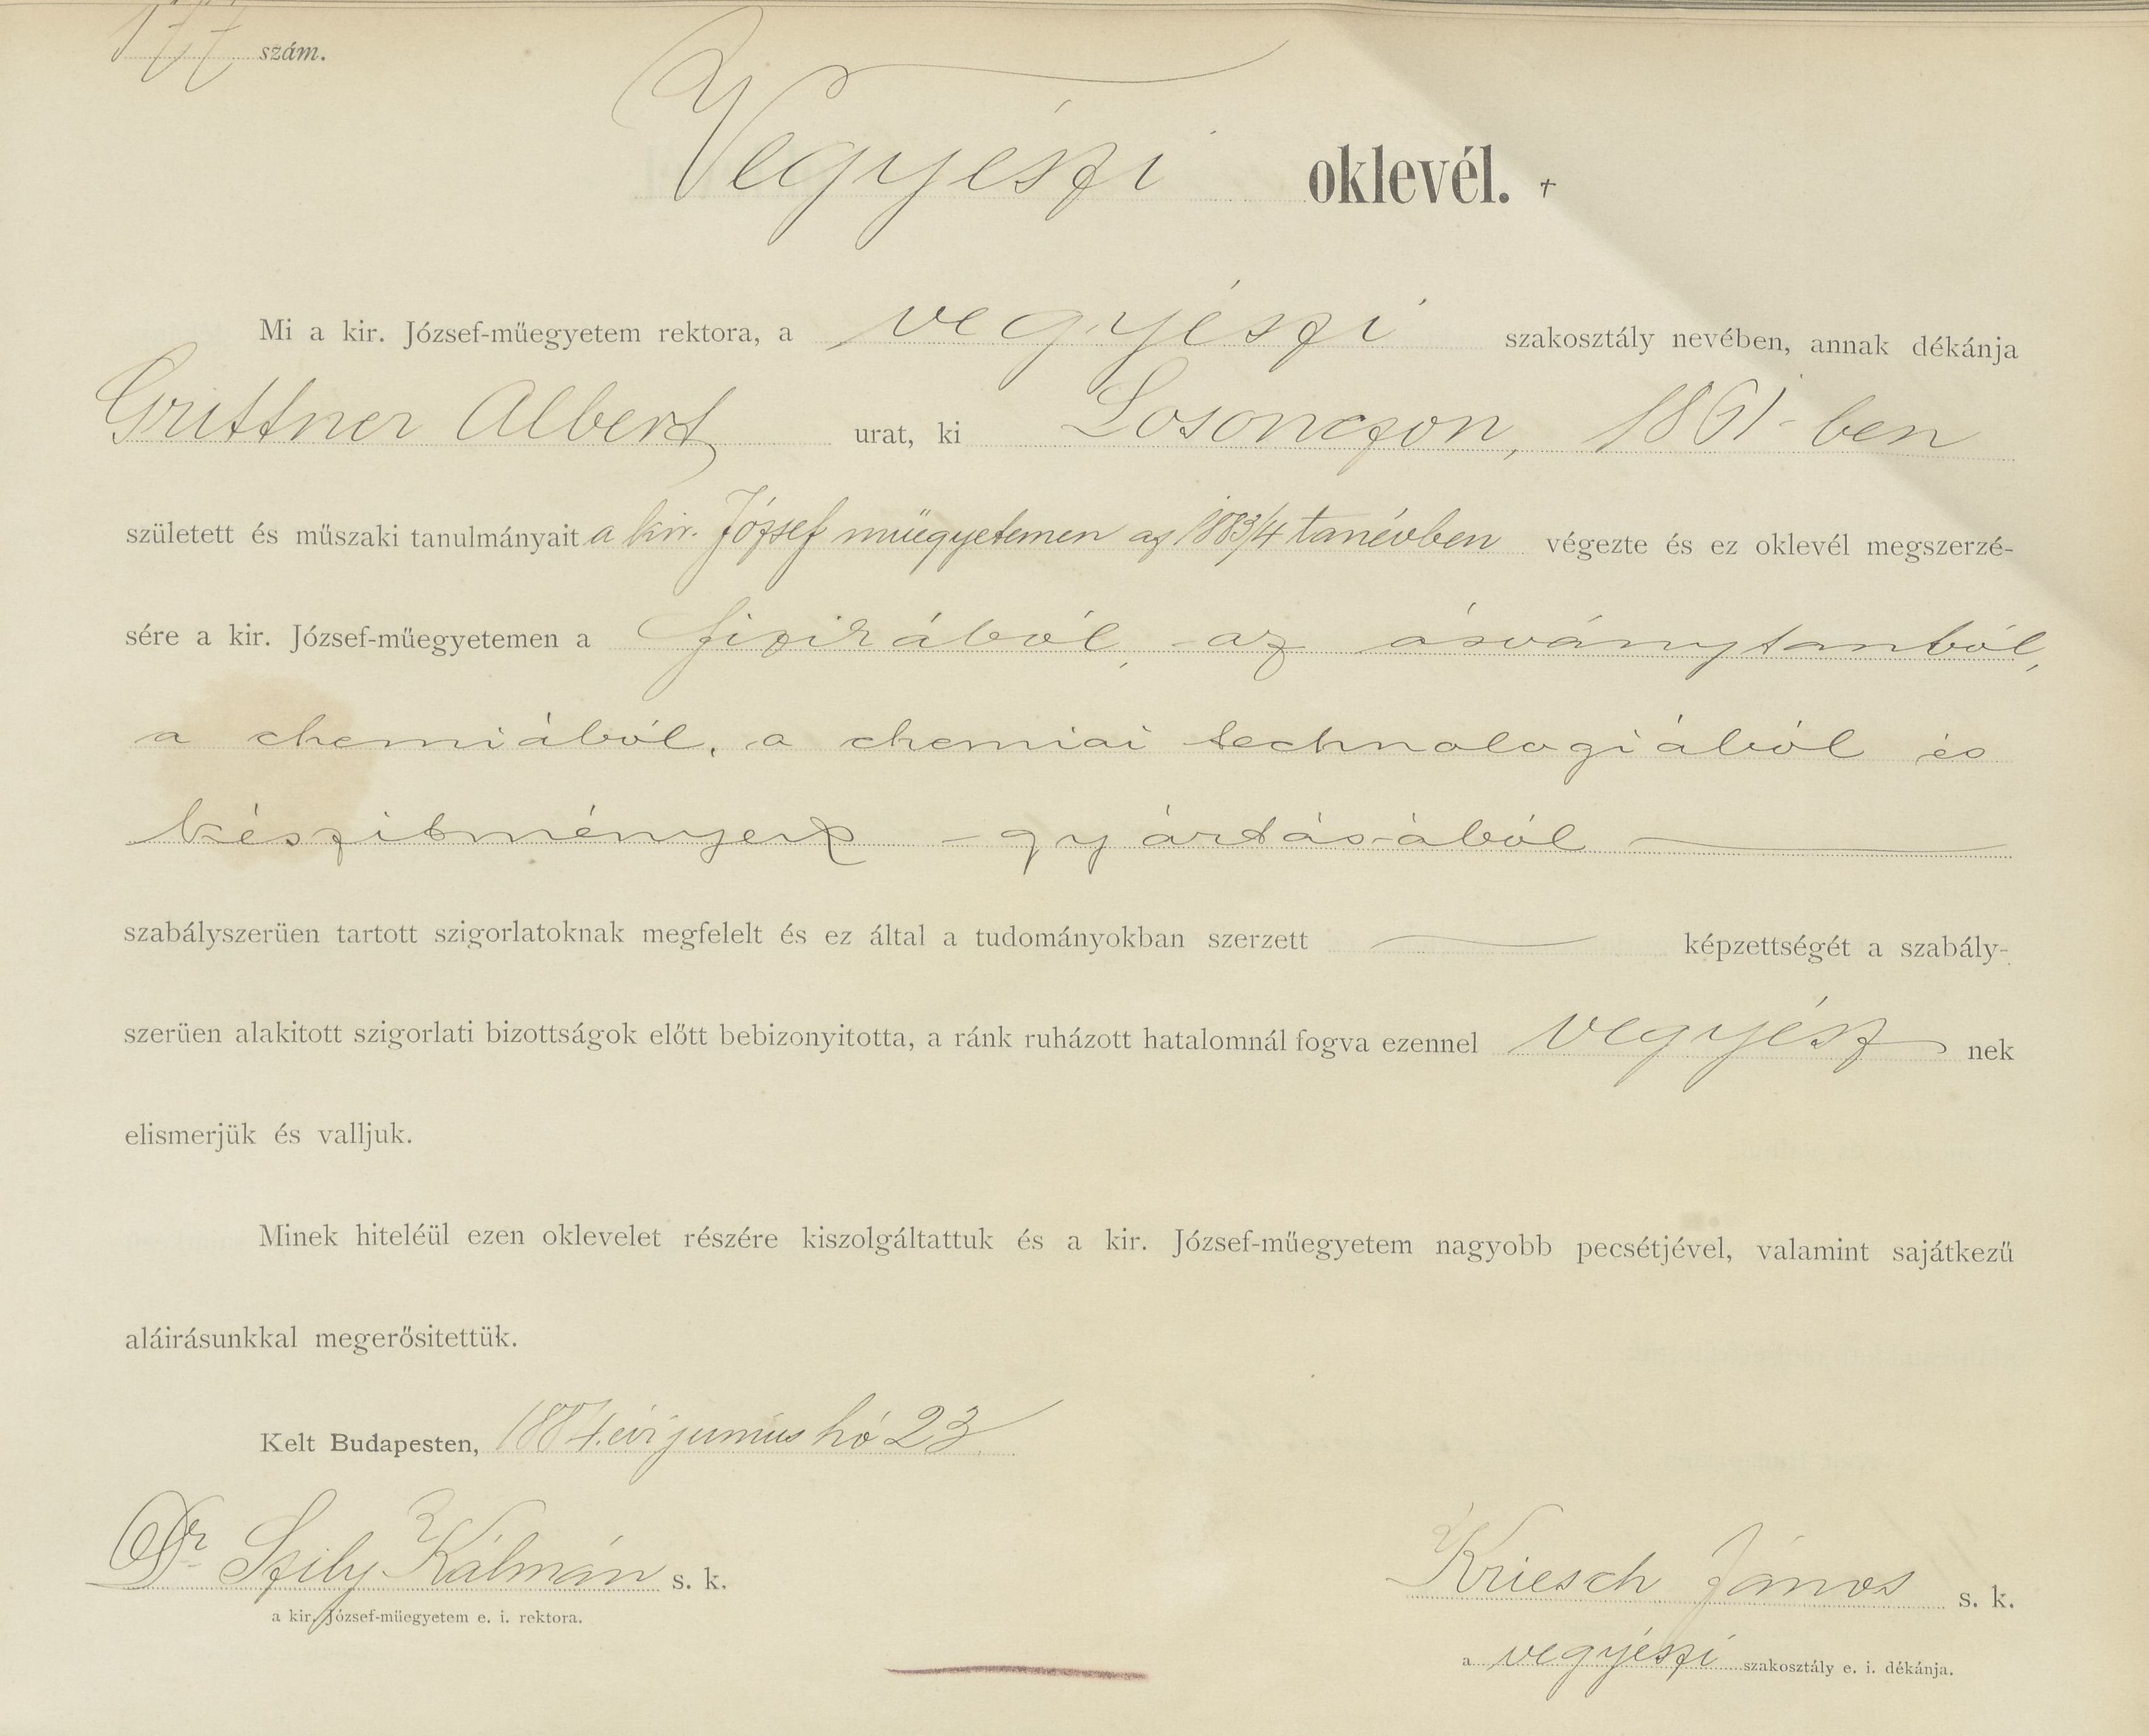 177 szám.
Vegyészi oklevél. †
Mi a kir. József-műegyetem rektora, a vegyészi szakosztály nevében, annak dékánja
Grittner Albert urat, ki Losonczon, 1861-ben
született és műszaki tanulmányait a kir. József műegyetemen az 1883/4 tanévben végezte és ez oklevél megszerzé-
sére a kir. József-műegyetemen a fizikából, az ásványtanból,
a chemiából, a chemiai technologiából és
készitmények - gyártásából
szabályszerüen tartott szigorlatoknak megfelelt és ez által a tudományokban szerzett képzettségét a szabály-
szerüen alakitott szigorlati bizottságok előtt bebizonyitotta, a ránk ruházott hatalomnál fogva ezennel vegyész nek
elismerjük és valljuk.
Minek hiteléül ezen oklevelet részére kiszolgáltattuk és a kir. József-műegyetem nagyobb pecsétjével, valamint sajátkezű
aláirásunkkal megerősitettük.
Kelt Budapesten, 1884. évi junius hó 23
Dr Szily Kálmán s. k. Kriesch János s. k.
a kir. József-műegyetem e. i. rektora. a vegyészi szakosztály e. i. dékánja.